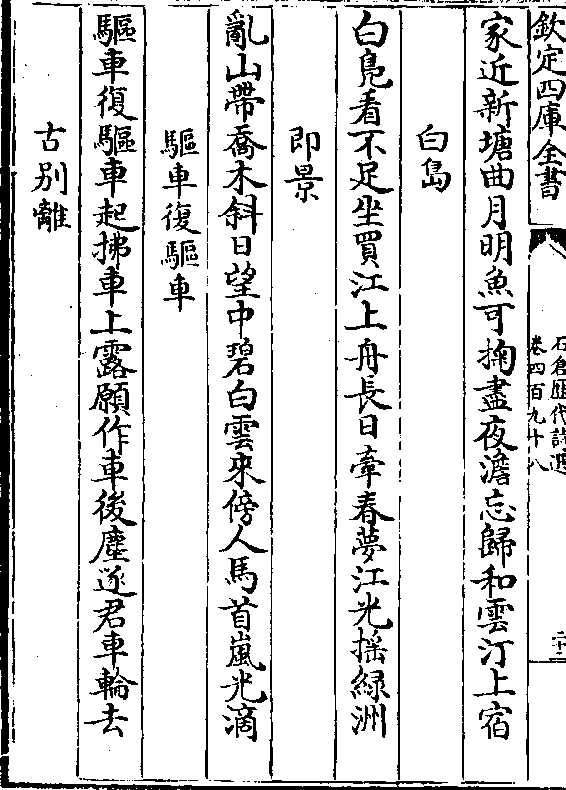 欽定四庫全書
石倉歷代詩選
卷四百九十八
家近新塘曲月明魚可掬盡夜澹忘歸和雲汀上宿
白島
白鳬看不足坐買江上舟長日牽春夢江光揺緑洲
即景
亂山帶喬木斜日望中碧白雲來傍人馬首嵐光滴
驅車復驅車
驅車復驅車起拂車上露願作車後塵逐君車輪去
古别離